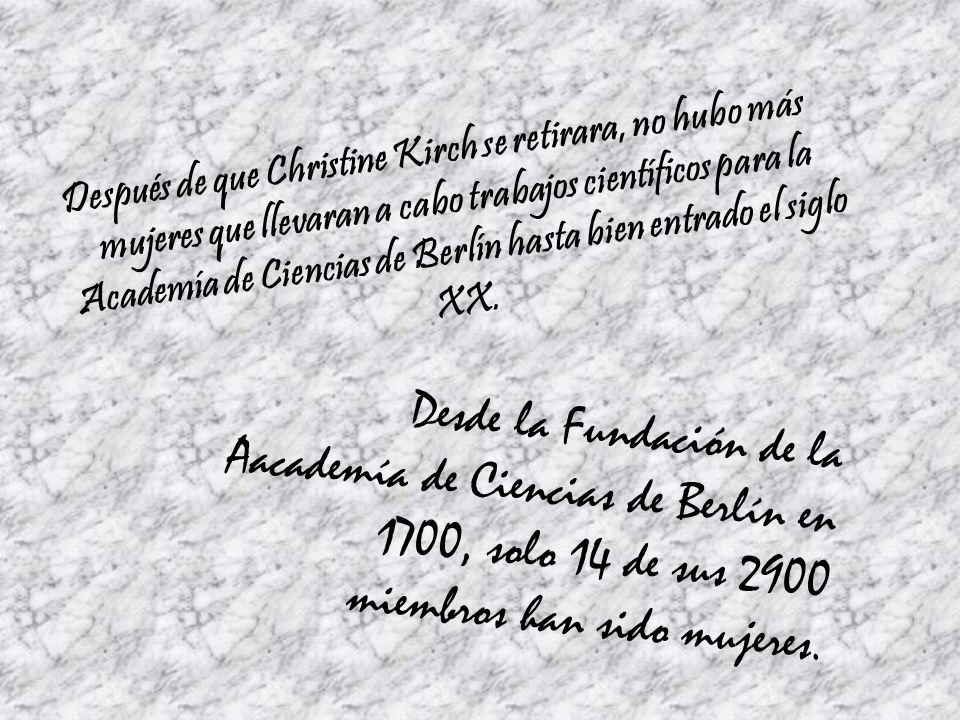 Después de que Christine Kirch se retirara, no hubo más
mujeres que llevaran a cabo trabajos científicos para la
Academía de Ciencias de Berlín hasta bien entrado el siglo
XX.
Desde la Fundación de la
Aacademía de Ciencias de Berlín en
1700, solo 14 de sus 2900
miembros han sido mujeres.